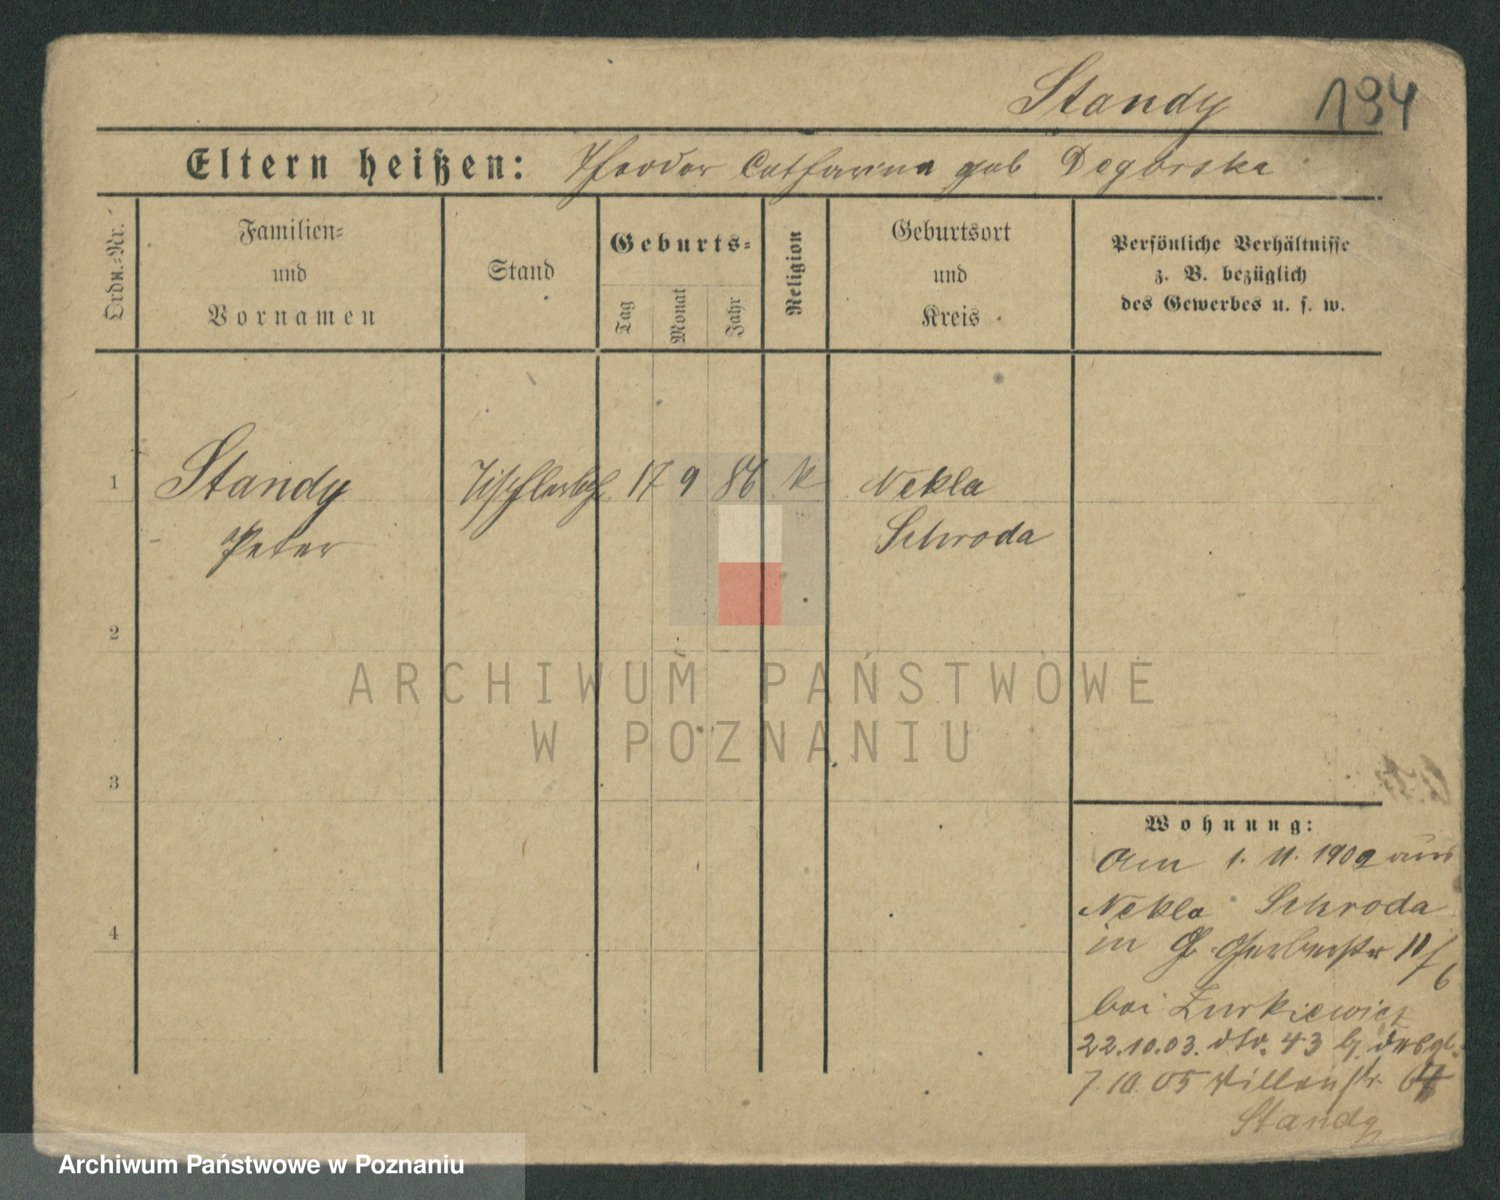 Standy 194
Eltern heißen: Theodor Catharina geb Degorska
Ordn.-Nr.
Familien-
und
Vornamen
Stand
Geburts-
Tag
Monat
Jahr
Religion
Geburtsort
und
Kreis
Persönliche Verhältnisse
z. B. bezüglich
des Gewerbes u. s. w.
1 Standy Tischlerlehrl 17 9 86 K Nekla
Peter Schroda
2
3
4
ARCHIWUM PAŃSTWOWE
W POZNANIU
Wohnung:
Am 1. 11. 1902 aus
Nekla Schroda
in Gr. Gerberstr 11/6
bei Zurkiewicz
22.10.03. dto. 43 b. desgl.
7.10.05 64
Standy
Archiwum Państwowe w Poznaniu